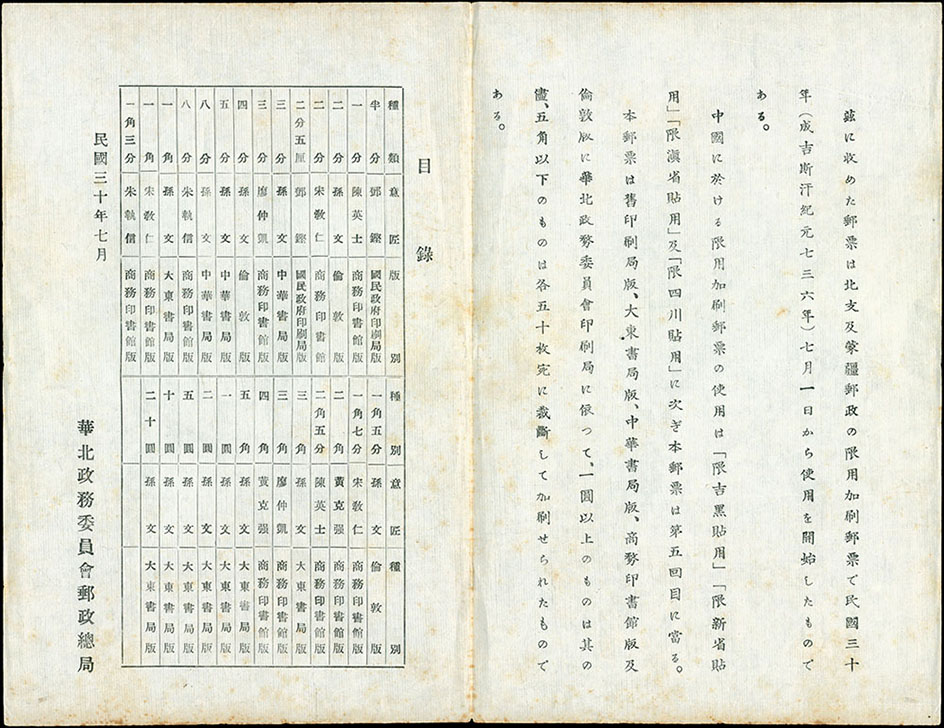 茲に收めた郵票は北支及蒙疆郵政の限用加刷郵票で民國三十
年(成吉斯汗紀元七三六年)七月一日から使用を開始したもので
ある。
中國に於ける限用加刷郵票の使用は「限吉黑貼用」「限新省貼
用」「限滇省貼用」及「限四川貼用」に次ぎ本郵票は第五回目に當る。
本郵票は舊印刷局版、大東書局版、中華書局版、商務印書館版及
倫敦版に華北政務委員會印刷局に依つて、一圓以上のものは其の
儘、五角以下のものは各五十枚宛に裁斷して加刷せられたもので
ある。
目錄
種類 意匠 版別
半分 鄧鏗 國民政府印刷局版
一分 陳英士 商務印書館版
二分 孫文 倫敦版
二分 宋敎仁 商務印書館版
二分五厘 鄧鏗 國民政府印刷局版
三分 孫文 中華書局版
三分 廖仲凱 商務印書館版
四分 孫文 倫敦版
五分 孫文 中華書局版
八分 孫文 中華書局版
八分 朱執信 商務印書館版
一角 孫文 大東書局版
一角 宋敎仁 商務印書館版
一角三分 朱執信 商務印書館版
種別 意匠 種別
一角五分 孫文 倫敦版
一角七分 宋敎仁 商務印書館版
二角 黃克强 商務印書館版
二角五分 陳英士 商務印書館版
三角 孫文 大東書局版
三角 廖仲凱 商務印書館版
四角 黃克强 商務印書館版
五角 孫文 大東書局版
一圓 孫文 大東書局版
二圓 孫文 大東書局版
五圓 孫文 大東書局版
十圓 孫文 大東書局版
二十圓 孫文 大東書局版
民國三十年七月
華北政務委員會郵政總局